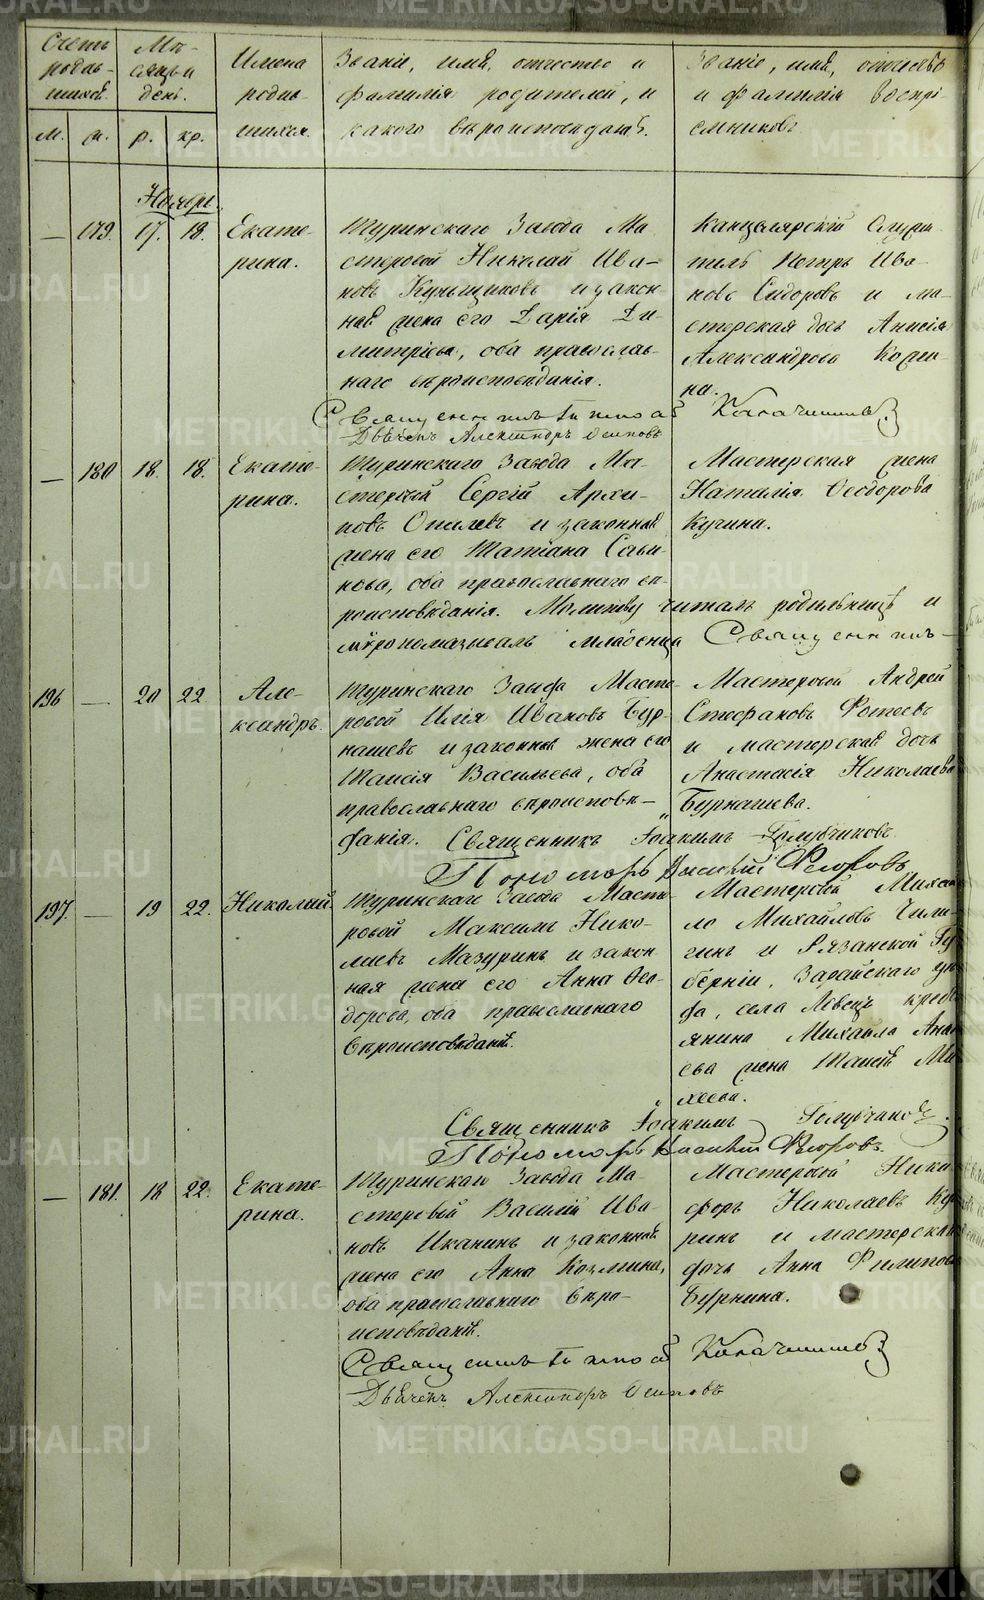 Счетъ родив-шихся.
Мѣ-сяцъ и день.
Имена родив-шихся.
Званіе, имя, отчество и фамилія родителей, и какого вѣроисповѣданія.
Званіе, имя, отчество и фамилія воспрі-емниковъ
м. ж. р. кр.
Ноябрь.
— 179. 17. 18. Екате-рина.
Туринскаго Завода Ма-
стеровой Николай Ива-
новъ и закон-
ная жена его Дарія Ди-
митріева, оба православ-
наго вѣроисповѣданія.
Канцелярскій Служи-
тель Петръ Ива-
новъ Сидоровъ и ма-
стерская дочь Анисія
Александрова
Священникъ
Дьячекъ Александръ Осиповъ
— 180 18. 18. Екате-рина.
Туринскаго Завода Ма-
стеровой Сергій Архи-
повъ и законная
жена его Татіана Сави-
нова, оба православнаго вѣ-
роисповѣданія. Молитву читалъ родильницѣ и
мѵропомазывалъ младенца Священникъ
Мастерская жена
Наталія Ѳеодорова
Кучина.
196 — 20 22 Але-ксандръ.
Туринскаго Завода Масте-
ровой Илія Ивановъ Бур-
нашевъ и законная жена его
Таисія Васильева, оба
православнаго вѣроисповѣ-
данія. Священникъ Іоакимъ Голубчиковъ
Пономарь Василій Ѳедоровъ
Мастеровой Андрей
Стефановъ Фотеевъ
и мастерская дочь
Анастасія Николаева
Бурнашева.
197. — 19 22. Николай.
Туринскаго Завода Масте-
ровой Максимъ Нико-
лаевъ Мазуринъ и закон-
ная жена его Анна Ѳео-
дорова, оба православнаго
вѣроисповѣданія.
Мастеровой Михаи-
ло Михайловъ
и Рязанской Гу-
берніи, Зарайскаго уѣз-
да, села Ловецъ кресть
янина Михаила Анан
ева жена Таисія Ми
хеева.
Священникъ Іоакимъ Голубчиковъ.
Пономарь Василій Ѳедоровъ.
— 181. 18 22. Екате-рина.
Туринскаго Завода Ма-
стеровой Василій Ива-
новъ Иканинъ и законная
жена его Анна Козмина,
оба православнаго вѣро-
исповѣданія.
Мастеровой Ники
форъ Николаевъ
и мастерская
дочь Анна Филипова
Бурнина.
Священникъ
Дьячекъ Александръ Осиповъ
METRIKI.GASO-URAL.RU